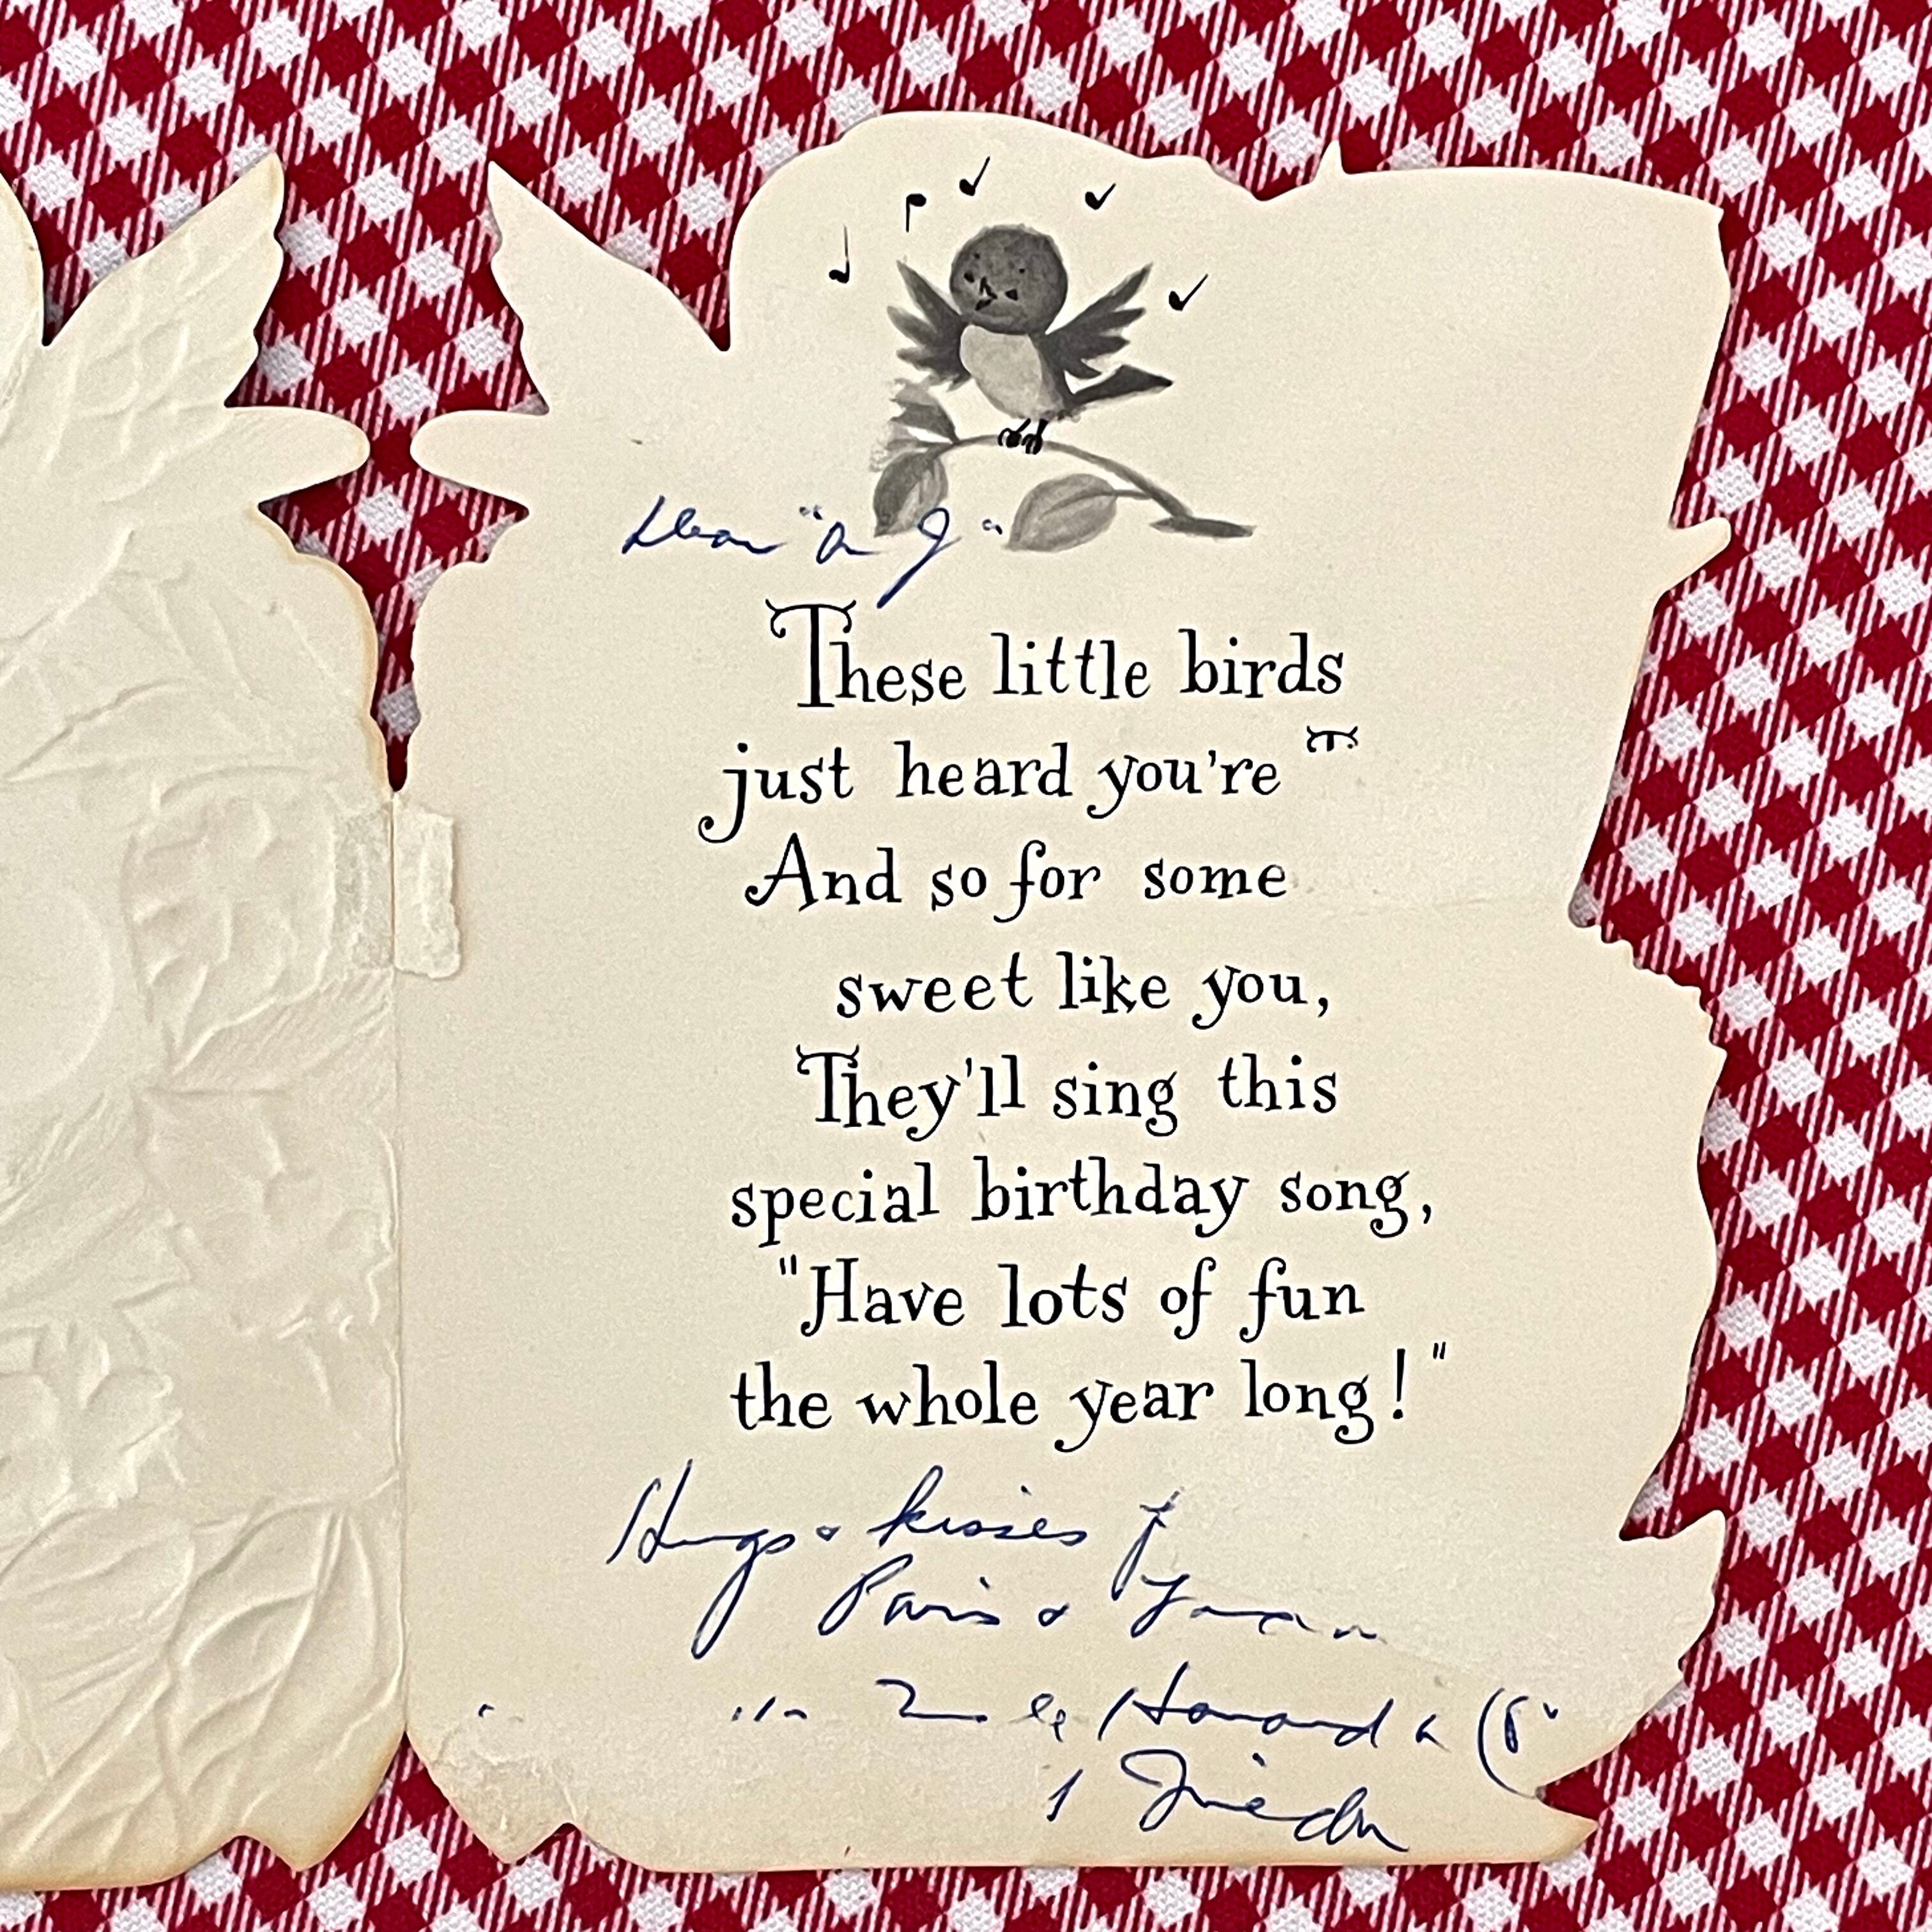 Dear "
These little birds
just heard you're
And so for some
sweet like you,
They'll sing this
special birthday song,
"Have lots of fun
the whole year long!"
Hugs & kisses
Paris &
Howard &